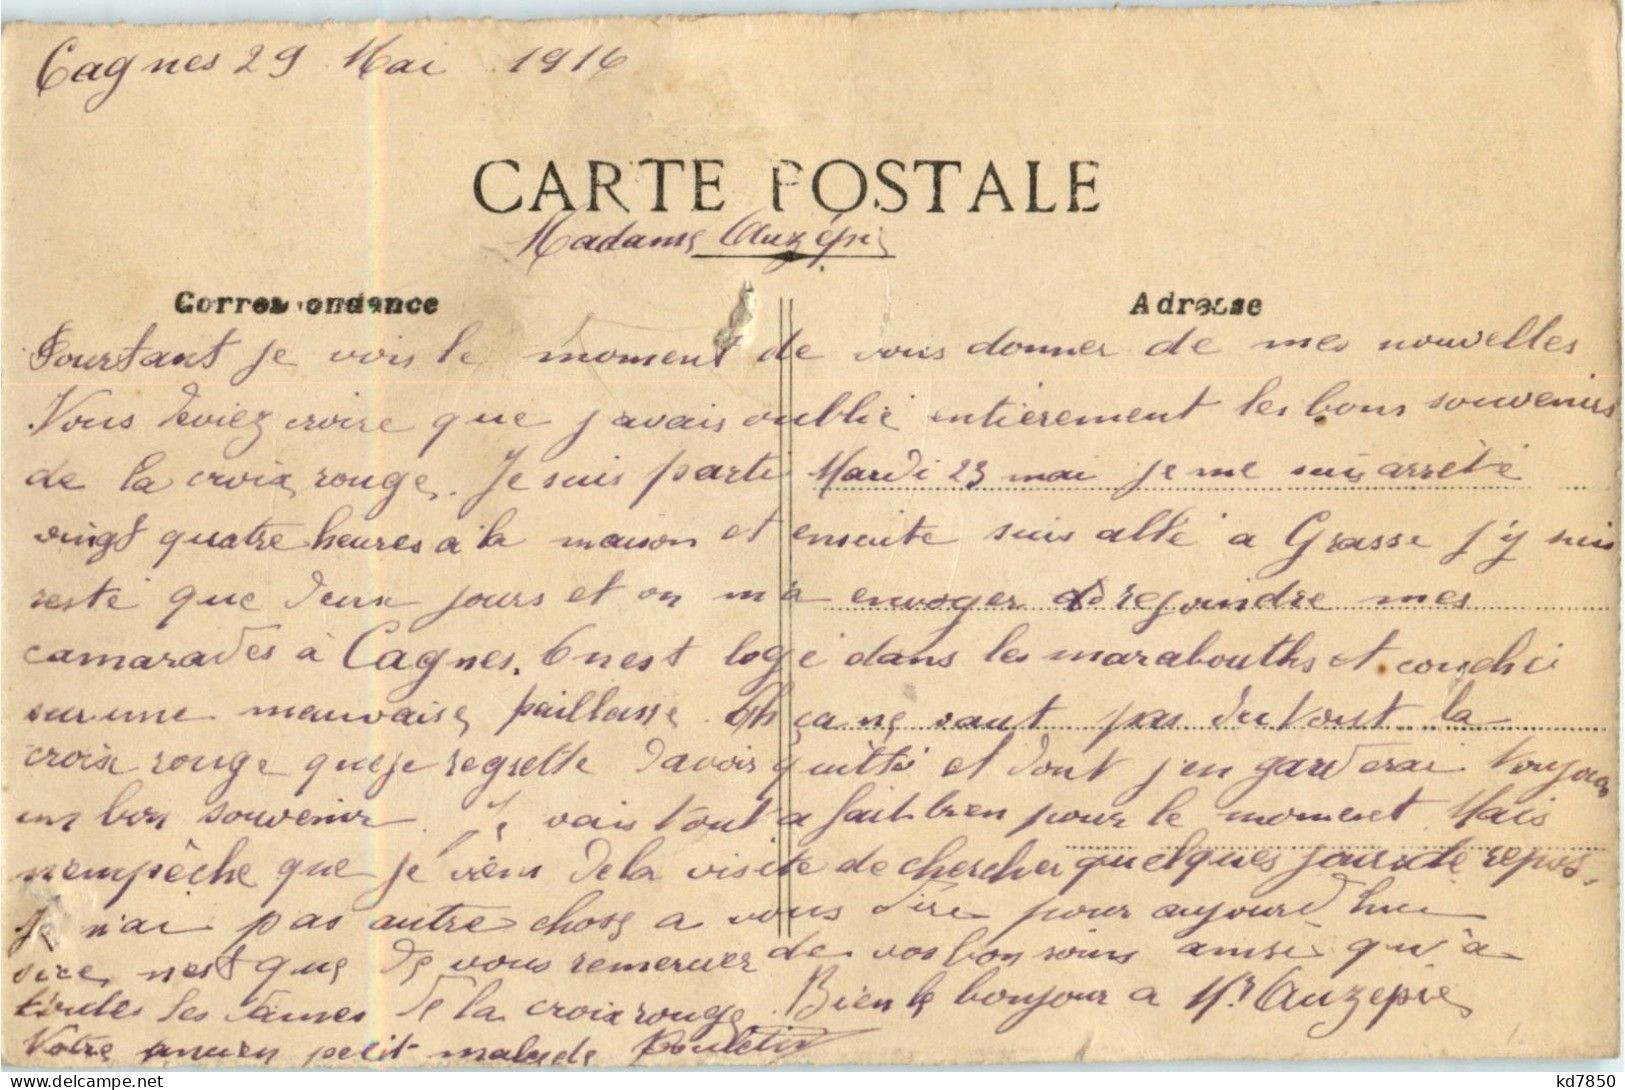 Cagnes 29 Mai 1916
CARTE POSTALE
Madame Auzépie
Correspondance
Adresse
Pourtant je vois le moment de vous donner de mes nouvelles
Vous deviez croire que j avais oublié entièrement les bons souvenirs
de la croix rouge. Je suis parti Mardi 23 mai je me suis arrêté
vingt quatre heures a la maison et ensuite suis allé a Grasse j'y suis
resté que deux jours et on m'a envoyer de rejoindre mes
camarades à Cagnes. On est logé dans les marabouths et couché
sur une mauvaise paillasse. Oh ça ne vaut pas du tout la
croix rouge que je regrette d'avoir quitté et dont j'en garderai toujours
un bon souvenir. Je vais tout a fait bien pour le moment. Mais
n'empêche que je viens de la visite de chercher quelques jours de repos.
Je n'ai pas autre chose a vous dire pour aujourd hui
n'est que de vous remercier de vos bon soins ainsi qu'à
toutes les dames de la croix rouge. Bien le bonjour a Mr Auzepie
Votre ancien petit malade
kd7850